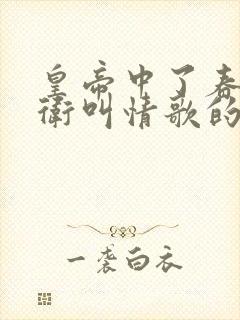 皇帝中了春
衛叫情歌的
一袭白衣